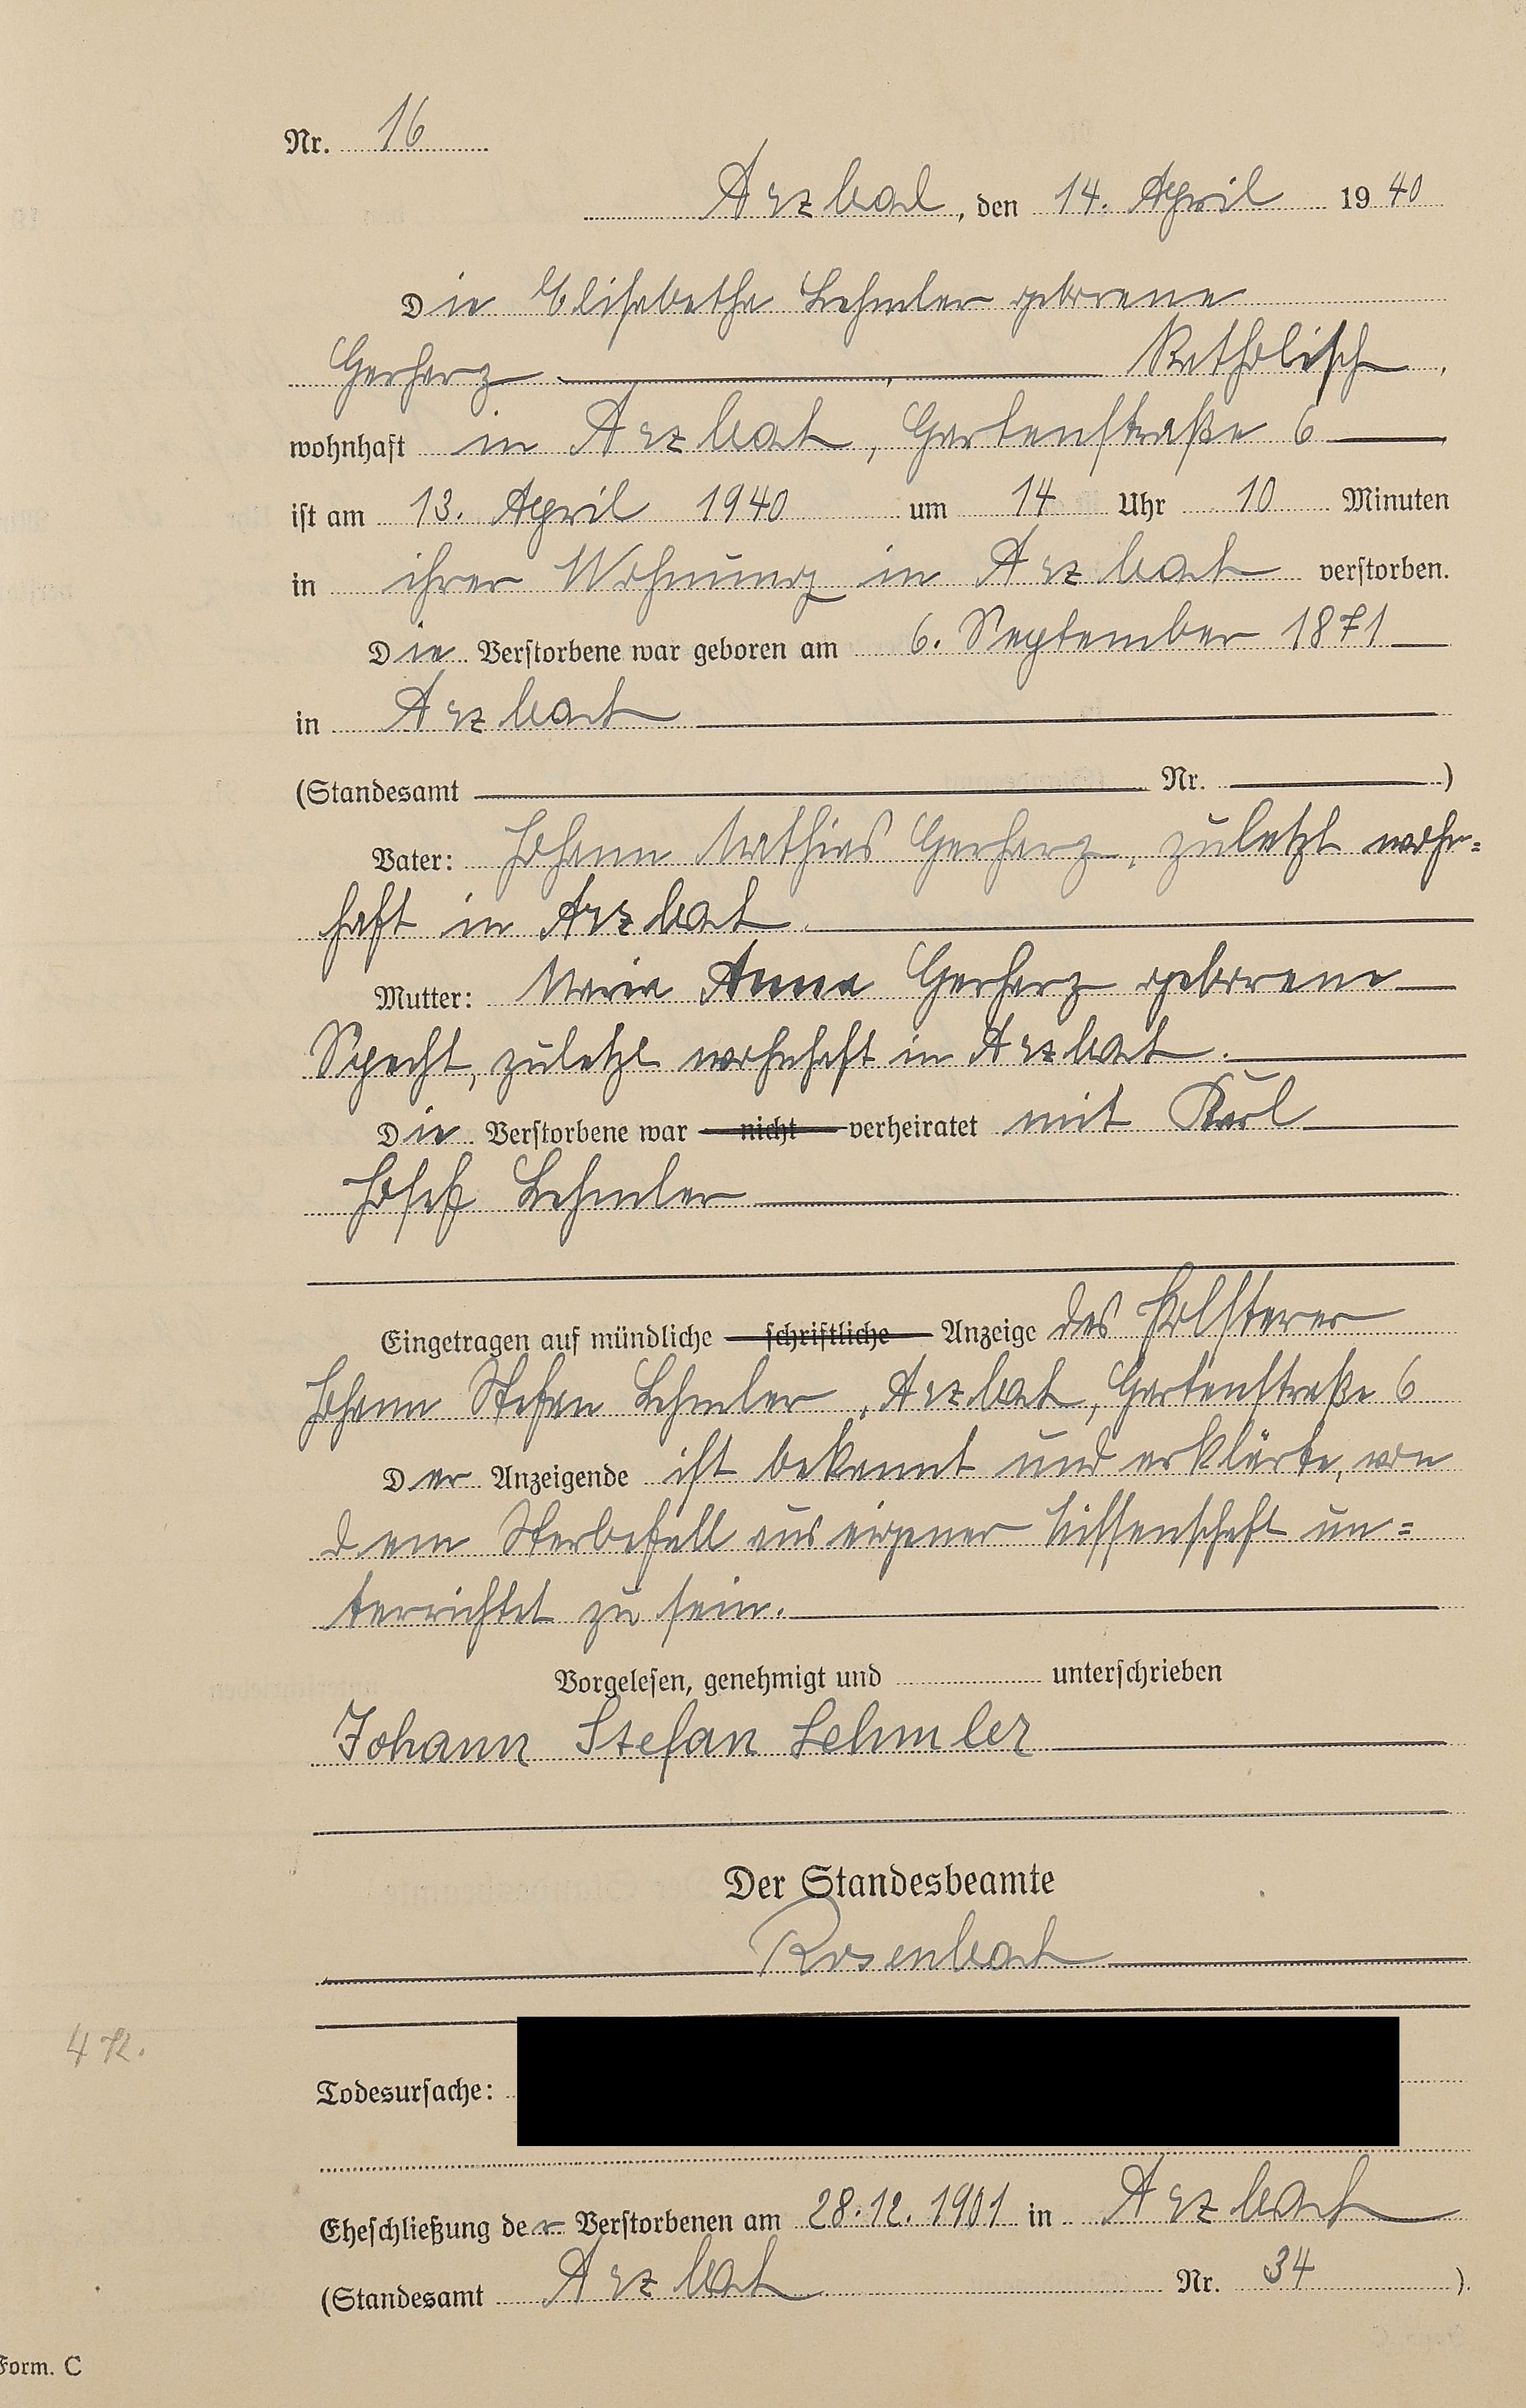 Nr. 16
Arzbach, den 14. April 1940
Die Elisabetha Lehmler geborene
Gerharz, Katholisch,
wohnhaft in Arzbach, Gartenstraße 6
ist am 13. April 1940 um 14 Uhr 10 Minuten
in ihrer Wohnung in Arzbach verstorben.
Die Verstorbene war geboren am 6. September 1871
in Arzbach
(Standesamt Nr. )
Vater: Johann Mathias Gerharz, zuletzt wohn=
haft in Arzbach.
Mutter: Maria Anna Gerharz geborene
Specht, zuletzt wohnhaft in Arzbach.
Die Verstorbene war nicht verheiratet mit Karl
Josef Lehmler
Eingetragen auf mündliche schriftliche Anzeige des Polsterer
Johann Stefan Lehmler, Arzbach, Gartenstraße 6
Der Anzeigende ist bekannt und erklärte, von
dem Sterbefall aus eigener Wissenschaft un=
terrichtet zu sein.
Vorgelesen, genehmigt und unterschrieben
Johann Stefan Lehmler
Der Standesbeamte
Rosenbach
Todesursache:
Eheschließung der Verstorbenen am 28.12.1901 in Arzbach
(Standesamt Arzbach Nr. 34 ).
Form. C